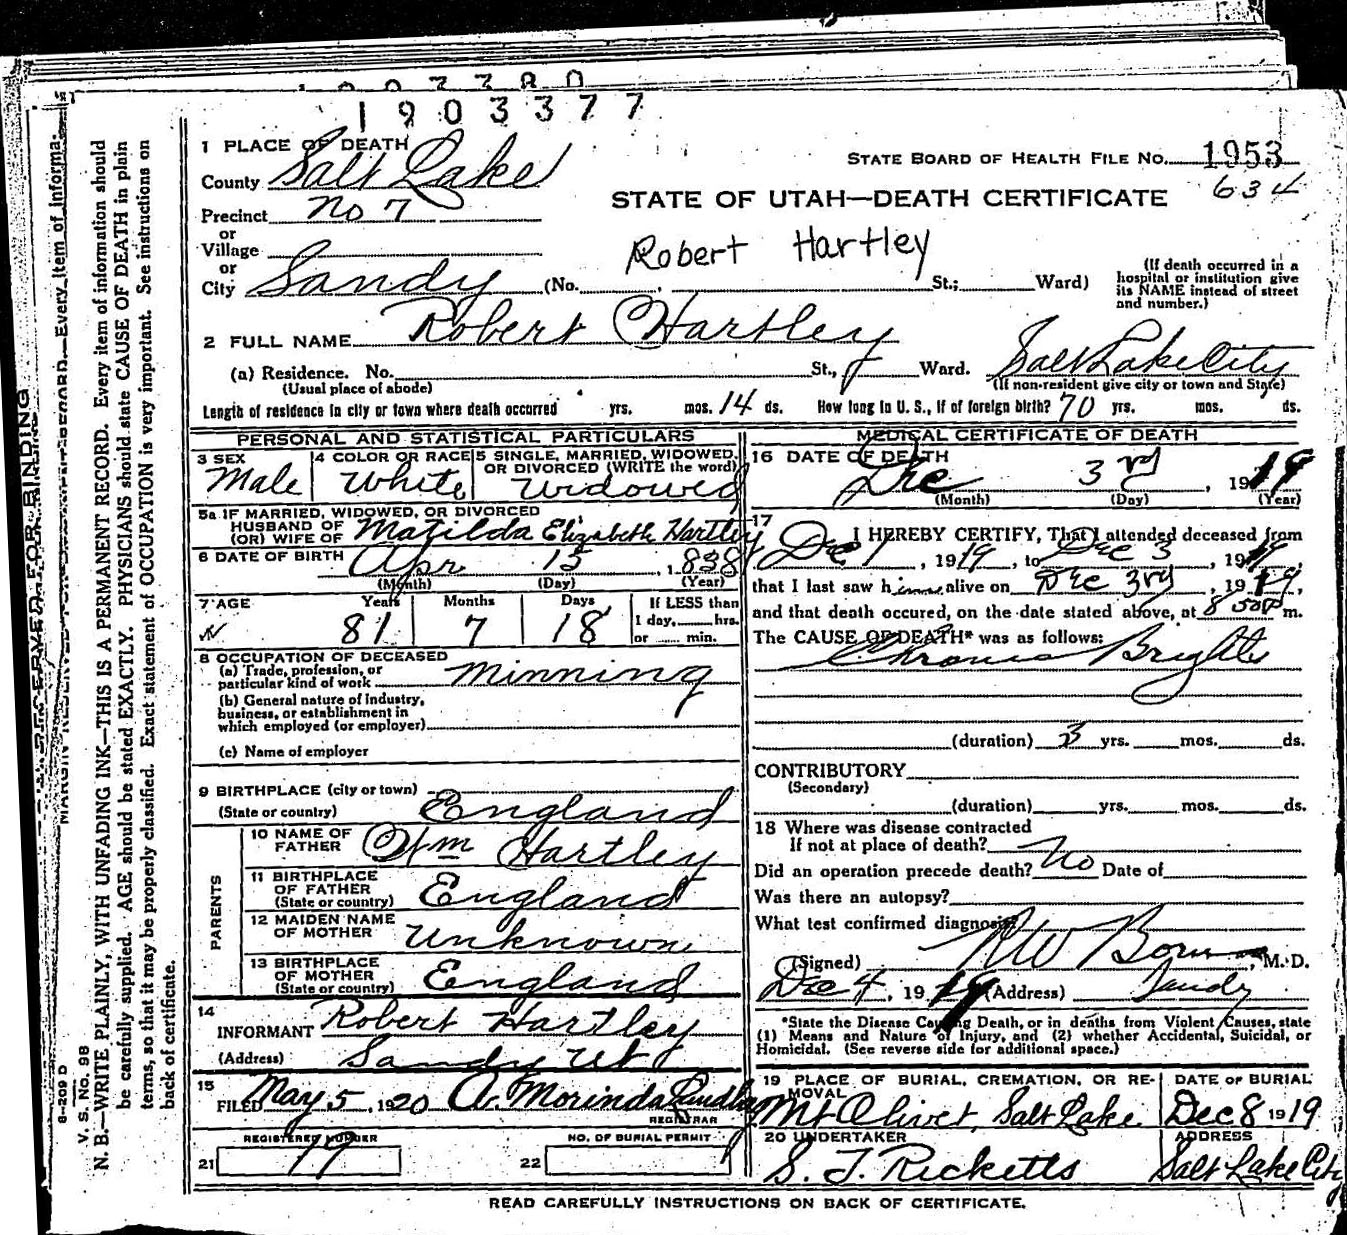 1903377
1 PLACE OF DEATH
County Salt Lake
STATE BOARD OF HEALTH FILE NO. 1953
634
STATE OF UTAH—DEATH CERTIFICATE
Precinct No 7
or
Village
or
City Sandy (No. , St.; Ward)
Robert Hartley
(If death occurred in a
hospital or institution give
its NAME instead of street
and number.)
2 FULL NAME Robert Hartley
(a) Residence. No. St., Ward. Salt Lake City
(Usual place of abode) (If non-resident give city or town and State)
Length of residence in city or town where death occurred yrs. mos. 14 ds. How long in U. S., if of foreign birth? 70 yrs. mos. ds.
PERSONAL AND STATISTICAL PARTICULARS
3 SEX Male
4 COLOR OR RACE White
5 SINGLE, MARRIED, WIDOWED,
OR DIVORCED (WRITE the word)
Widowed
5a IF MARRIED, WIDOWED, OR DIVORCED
HUSBAND OF
(OR) WIFE OF Matilda Elizabeth Hartley
6 DATE OF BIRTH Apr 15, 1838
(Month) (Day) (Year)
7 AGE Years Months Days If LESS than
1 day, hrs.
or min.
81 7 18
8 OCCUPATION OF DECEASED
(a) Trade, profession, or
particular kind of work Minning
(b) General nature of industry,
business, or establishment in
which employed (or employer)
(c) Name of employer
9 BIRTHPLACE (city or town)
(State or country) England
PARENTS
10 NAME OF
FATHER Wm Hartley
11 BIRTHPLACE
OF FATHER
(State or country) England
12 MAIDEN NAME
OF MOTHER Unknown
13 BIRTHPLACE
OF MOTHER
(State or country) England
14
INFORMANT Robert Hartley
(Address) Sandy Ut
15
FILED May 5, 1920 A. Morinda
REGISTRAR
REGISTERED NUMBER
21 79
NO. OF BURIAL PERMIT
22
MEDICAL CERTIFICATE OF DEATH
16 DATE OF DEATH
Dec 3rd, 1919
(Month) (Day) (Year)
17
I HEREBY CERTIFY, That I attended deceased from
Dec 1, 1919, to Dec 3, 1919,
that I last saw him alive on Dec 3rd, 1919,
and that death occured, on the date stated above, at 8 50 P m.
The CAUSE OF DEATH* was as follows:
Chronic Brights
(duration) 3 yrs. mos. ds.
CONTRIBUTORY
(Secondary)
(duration) yrs. mos. ds.
18 Where was disease contracted
If not at place of death?
Did an operation precede death? No Date of
Was there an autopsy?
What test confirmed diagnosis
(Signed) , M. D.
Dec 4, 1919 (Address) Sandy
*State the Disease Causing Death, or in deaths from Violent Causes, state
(1) Means and Nature of Injury, and (2) whether Accidental, Suicidal, or
Homicidal. (See reverse side for additional space.)
19 PLACE OF BURIAL, CREMATION, OR RE-
MOVAL
Mt Olivet, Salt Lake
DATE OF BURIAL
Dec 8 1919
20 UNDERTAKER
S. T. Ricketts
ADDRESS
Salt Lake City
READ CAREFULLY INSTRUCTIONS ON BACK OF CERTIFICATE.
N. B.—WRITE PLAINLY, WITH UNFADING INK—THIS IS A PERMANENT RECORD. Every item of information should
be carefully supplied. AGE should be stated EXACTLY. PHYSICIANS should state CAUSE OF DEATH in plain
terms, so that it may be properly classified. Exact statement of OCCUPATION is very important. See instructions on
back of certificate.
V. S. No. 9B